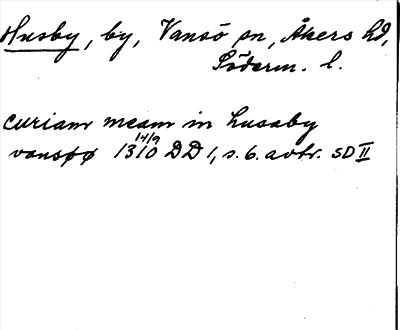 Husby, by, Vansö sn, Åkers hd,
Söderm. l.
curiam meam in husaby
vansøø 14/9 1310 DD 1, s. 6. avtr. SD II